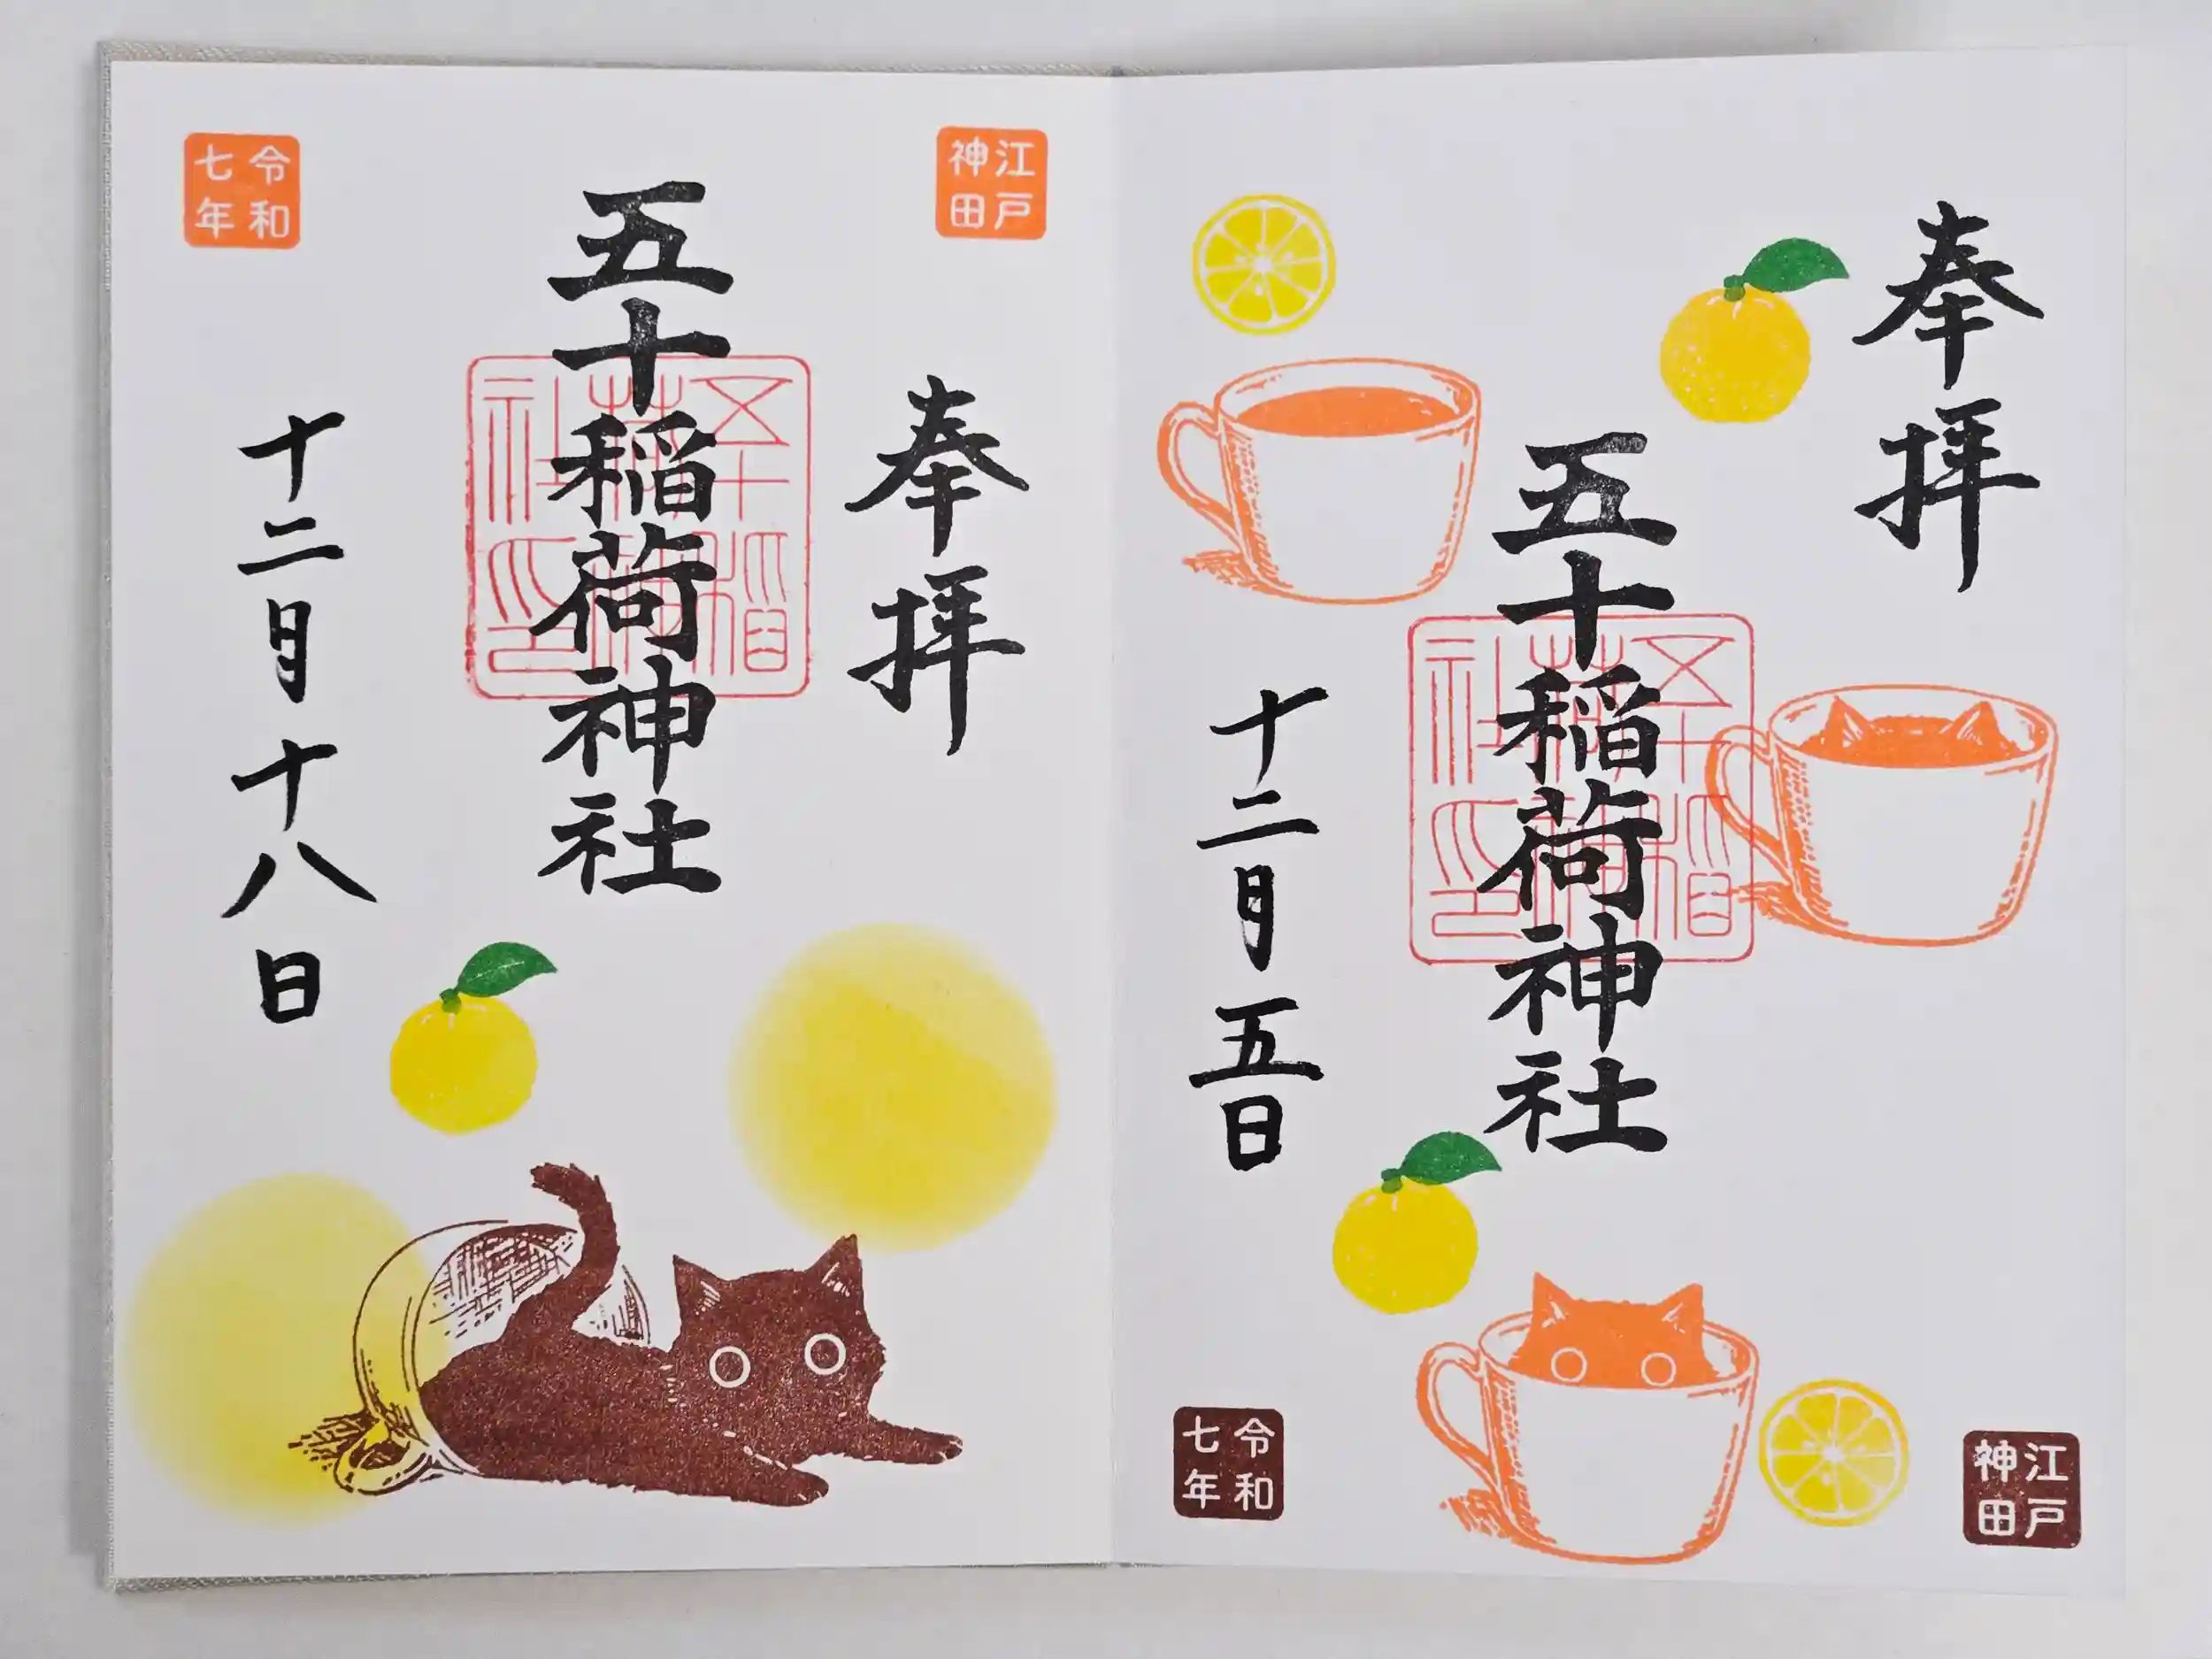 奉拝
五十稲荷神社
十二月五日
江戸
神田
令和
七年
江戸
神田
奉拝
五十稲荷神社
令和
七年
十二月十八日